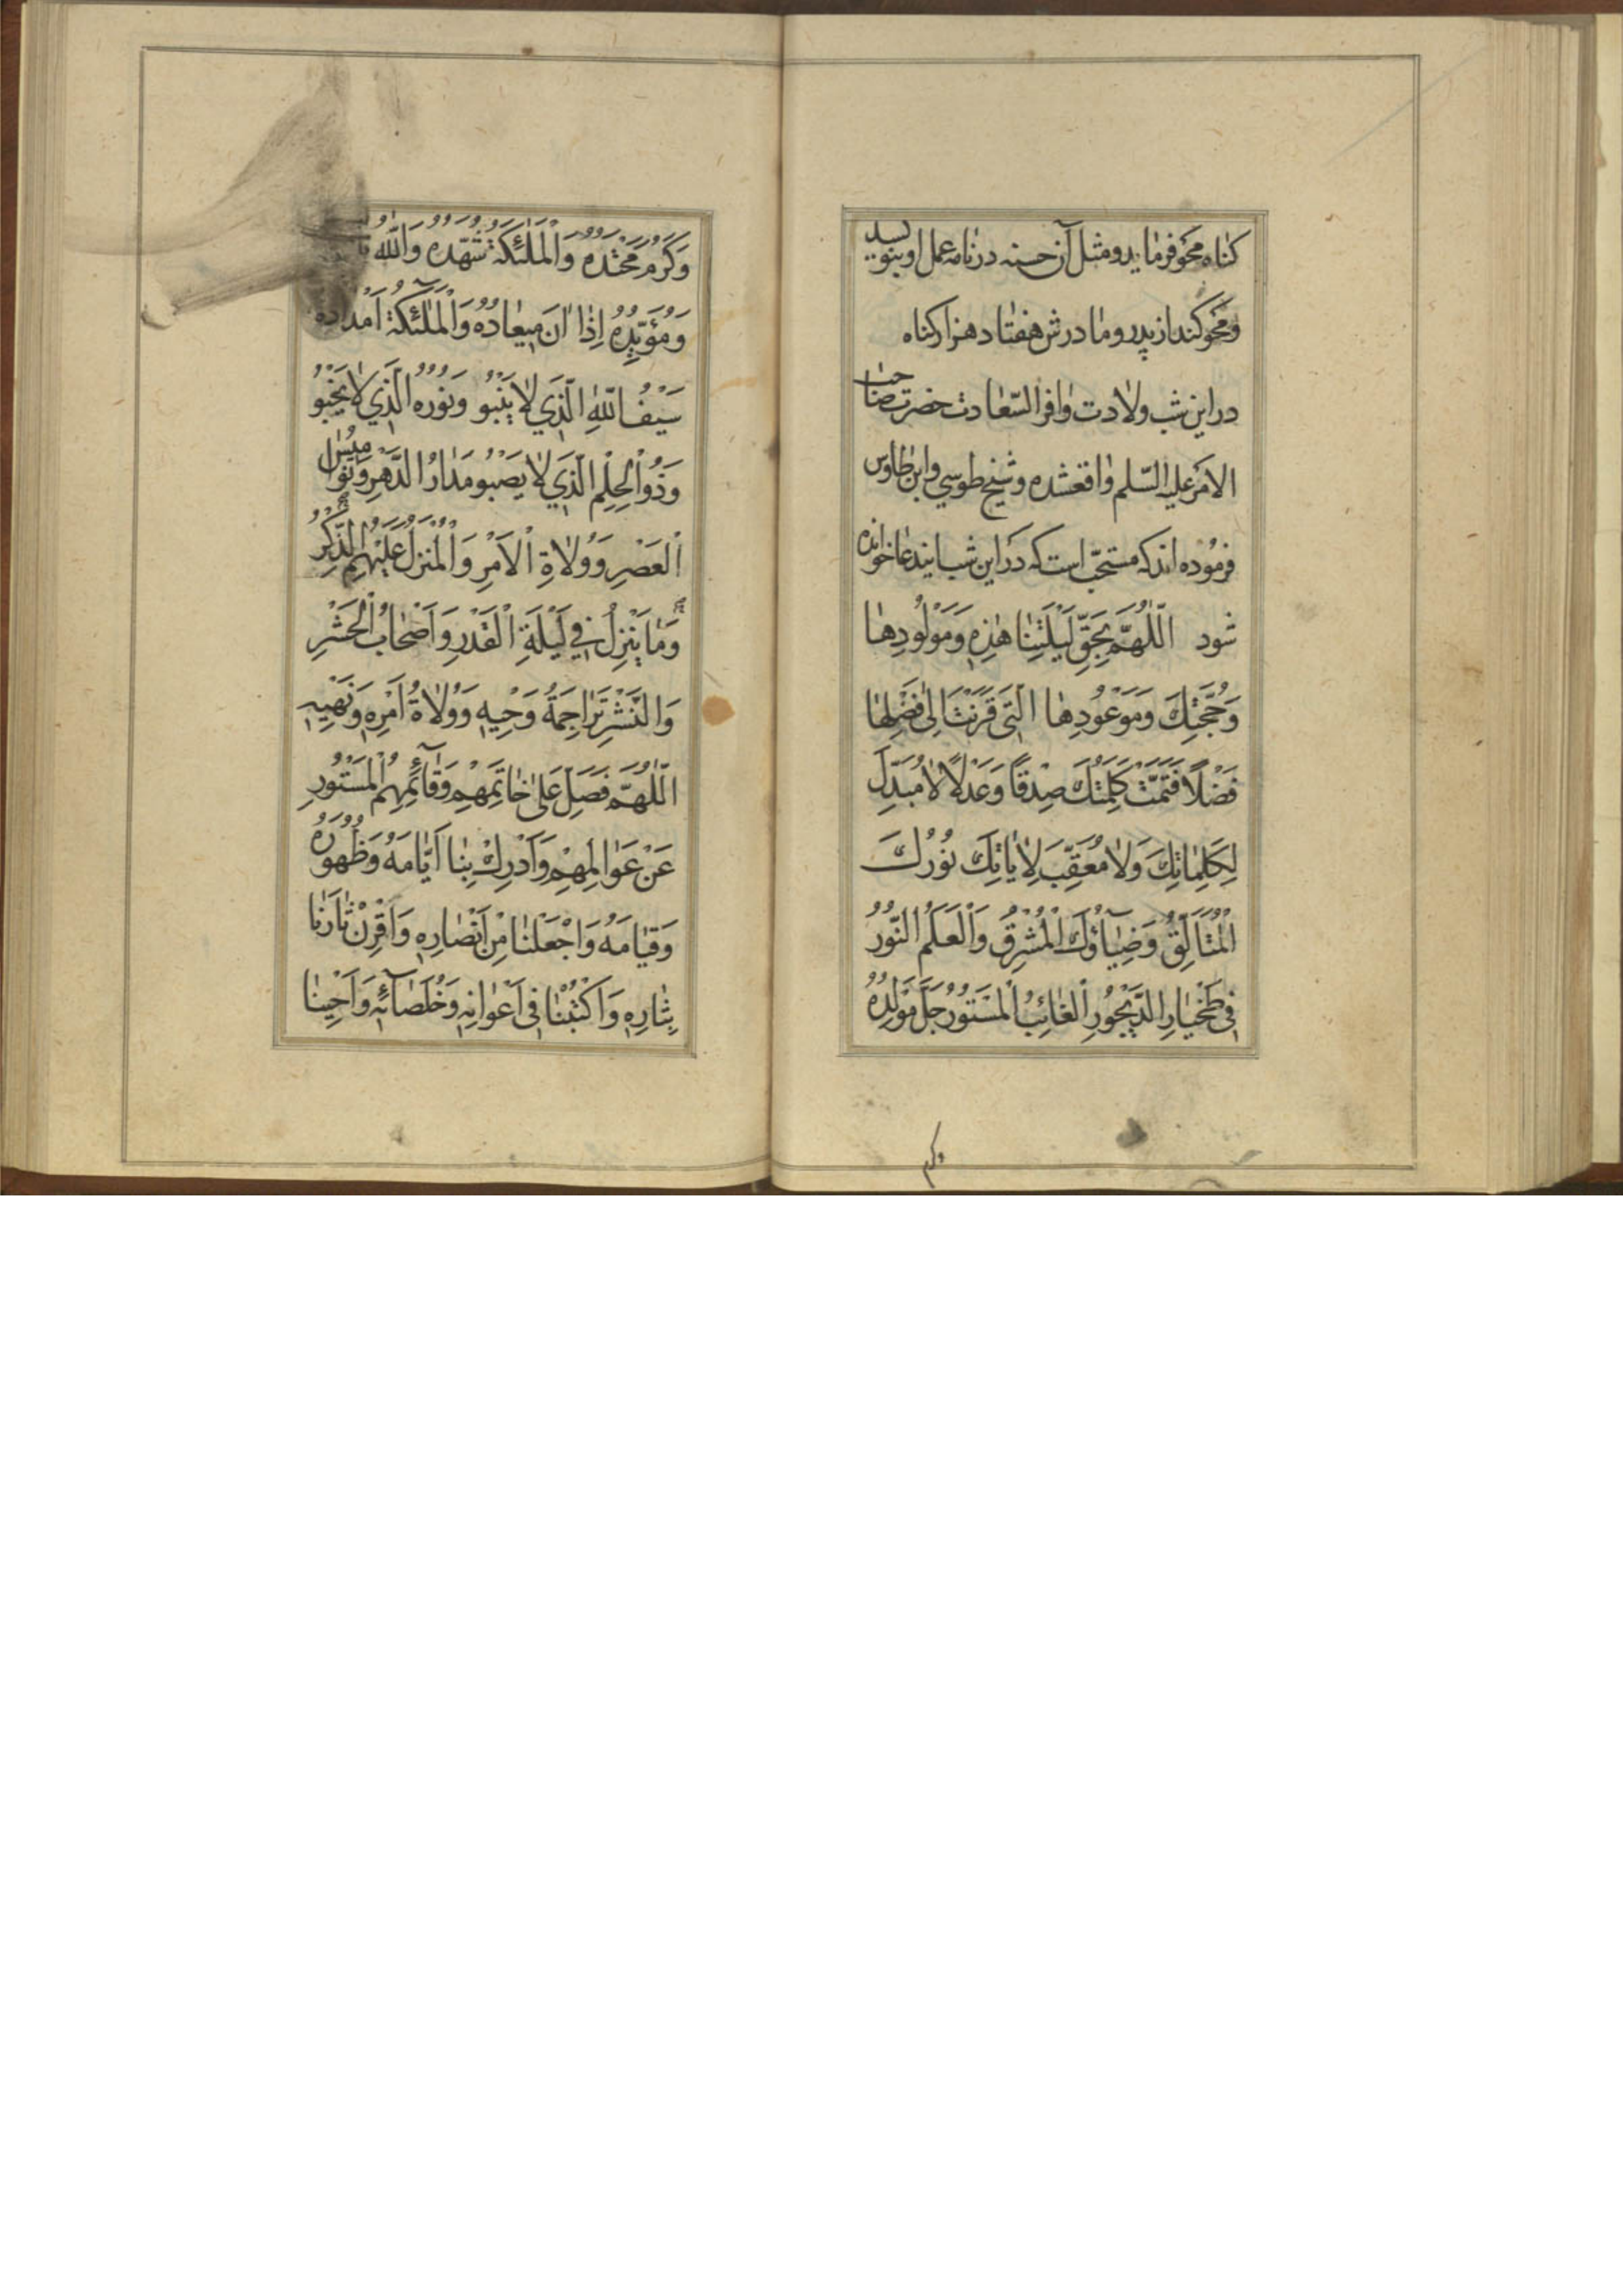 کناه محو فرماید و مثل آن حسنه در نامه عمل او بنویسد
و محو کند از پدر و مادرش هفتاد هزار کناه
در این شب ولادت وافر السّعادت حضرت صاحب
الامر علیه السّلم واقع شده و شیخ طوسی و ابن طاوس
فرموده اند که مستحبّ است که در این شب این دعا خوانده
شود اَللّٰهُمَّ بِحَقِّ لَيْلَتِنٰا هٰذِهِ وَمَوْلُودِهٰا
وَحُجَّتِكَ وَمَوْعُودِهٰا الَّتِي قَرَنْتَ اِلىٰ فَضْلِهٰا
فَضْلاً فَتَمَّتْ كَلِمَتُكَ صِدْقاً وَعَدْلاً لاٰ مُبَدِّلَ
لِكَلِمٰاتِكَ وَلاٰ مُعَقِّبَ لِاٰيٰاتِكَ نُورُكَ
الْمُتَاَلِّقُ وَضِيٰآؤُكَ الْمُشْرِقُ وَالْعَلَمُ النُّورُ
فِي طَخْيٰارِ الدَّيْجُورِ الْغٰائِبُ الْمَسْتُورُ جَلَّ مَوْلِدُهُ
وکرم
وَكَرُمَ مَحْتِدُهُ وَالْمَلٰئِكَةُ شُهَّدُهُ وَاللّٰهُ
وَمُؤَيِّدُهُ اِذٰا اٰنَ مِيعٰادُهُ وَالْمَلٰئِكَةُ اَمْدٰادُهُ
سَيْفُ اللّٰهِ الَّذِي لاٰ يَنْبُو وَنُورُهُ الَّذِي لاٰ يَخْبُو
وَذُو الْحِلْمِ الَّذِي لاٰ يَصْبُو مَدٰارُ الدَّهْرِ وَنَوٰامِيسُ
الْعَصْرِ وَوُلاٰةِ الْاَمْرِ وَالْمُنَزَّلُ عَلَيْهِمُ الذِّكْرُ
وَمٰا يَنْزِلُ فِي لَيْلَةِ الْقَدْرِ وَاَصْحٰابُ الْحَشْرِ
وَالنَّشْرِ تَرٰاجِمَةُ وَحْيِهِ وَوُلاٰةُ اَمْرِهِ وَنَهْيِهِ
اَللّٰهُمَّ فَصَلِّ عَلىٰ خٰاتِمِهِمْ وَقٰآئِمِهِمُ الْمَسْتُورِ
عَنْ عَوٰالِمِهِمْ وَاَدْرِكْ بِنٰا اَيّٰامَهُ وَظُهُورَهُ
وَقِيٰامَهُ وَاجْعَلْنٰا مِنْ اَنْصٰارِهِ وَاقْرِنْ ثٰارَنٰا
بِثٰارِهِ وَاكْتُبْنٰا فِي اَعْوٰانِهِ وَخُلَصٰآئِهِ وَاَحْيِنٰا